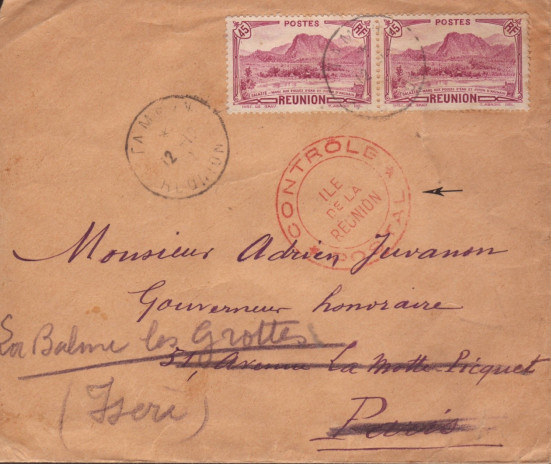 POSTES
45 RF
RÉUNION
POSTES
45 RF
RÉUNION
TAMPON
12
RÉUNION
CONTRÔLE POSTAL
ILE
DE LA
RÉUNION
Monsieur Adrien Juvanon
Gouverneur honoraire
La Balme les Grottes
51, Avenue La Motte-Picquet
(Isère)
Paris